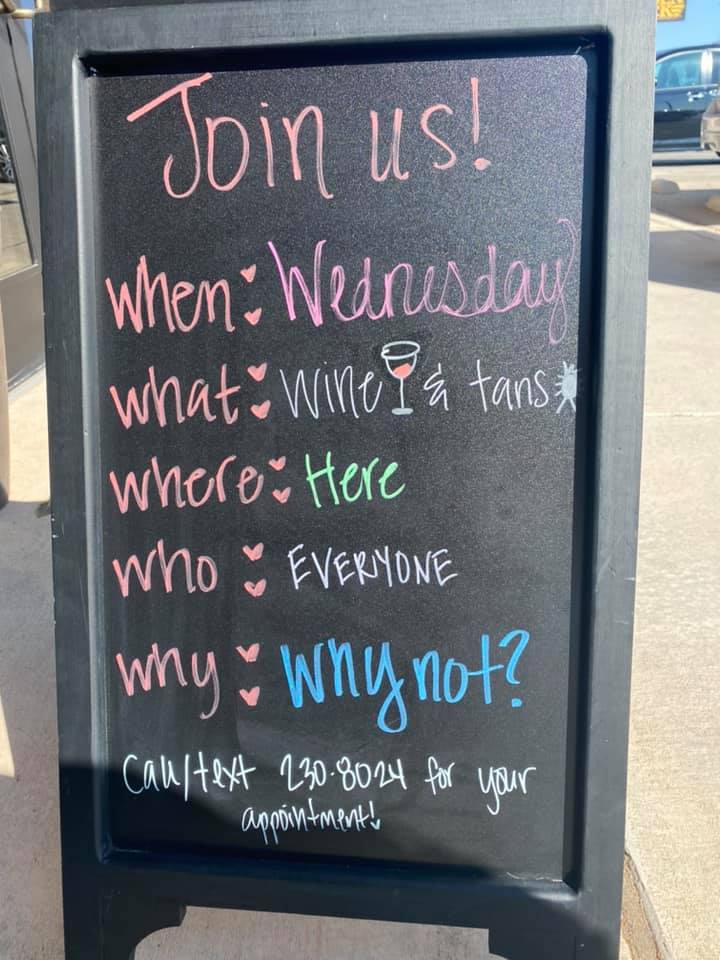 Join us!
when: Wednesday
what: wine & tans
where: Here
who: EVERYONE
why: Why not?
Call/text 230-8024 for your
appointment!